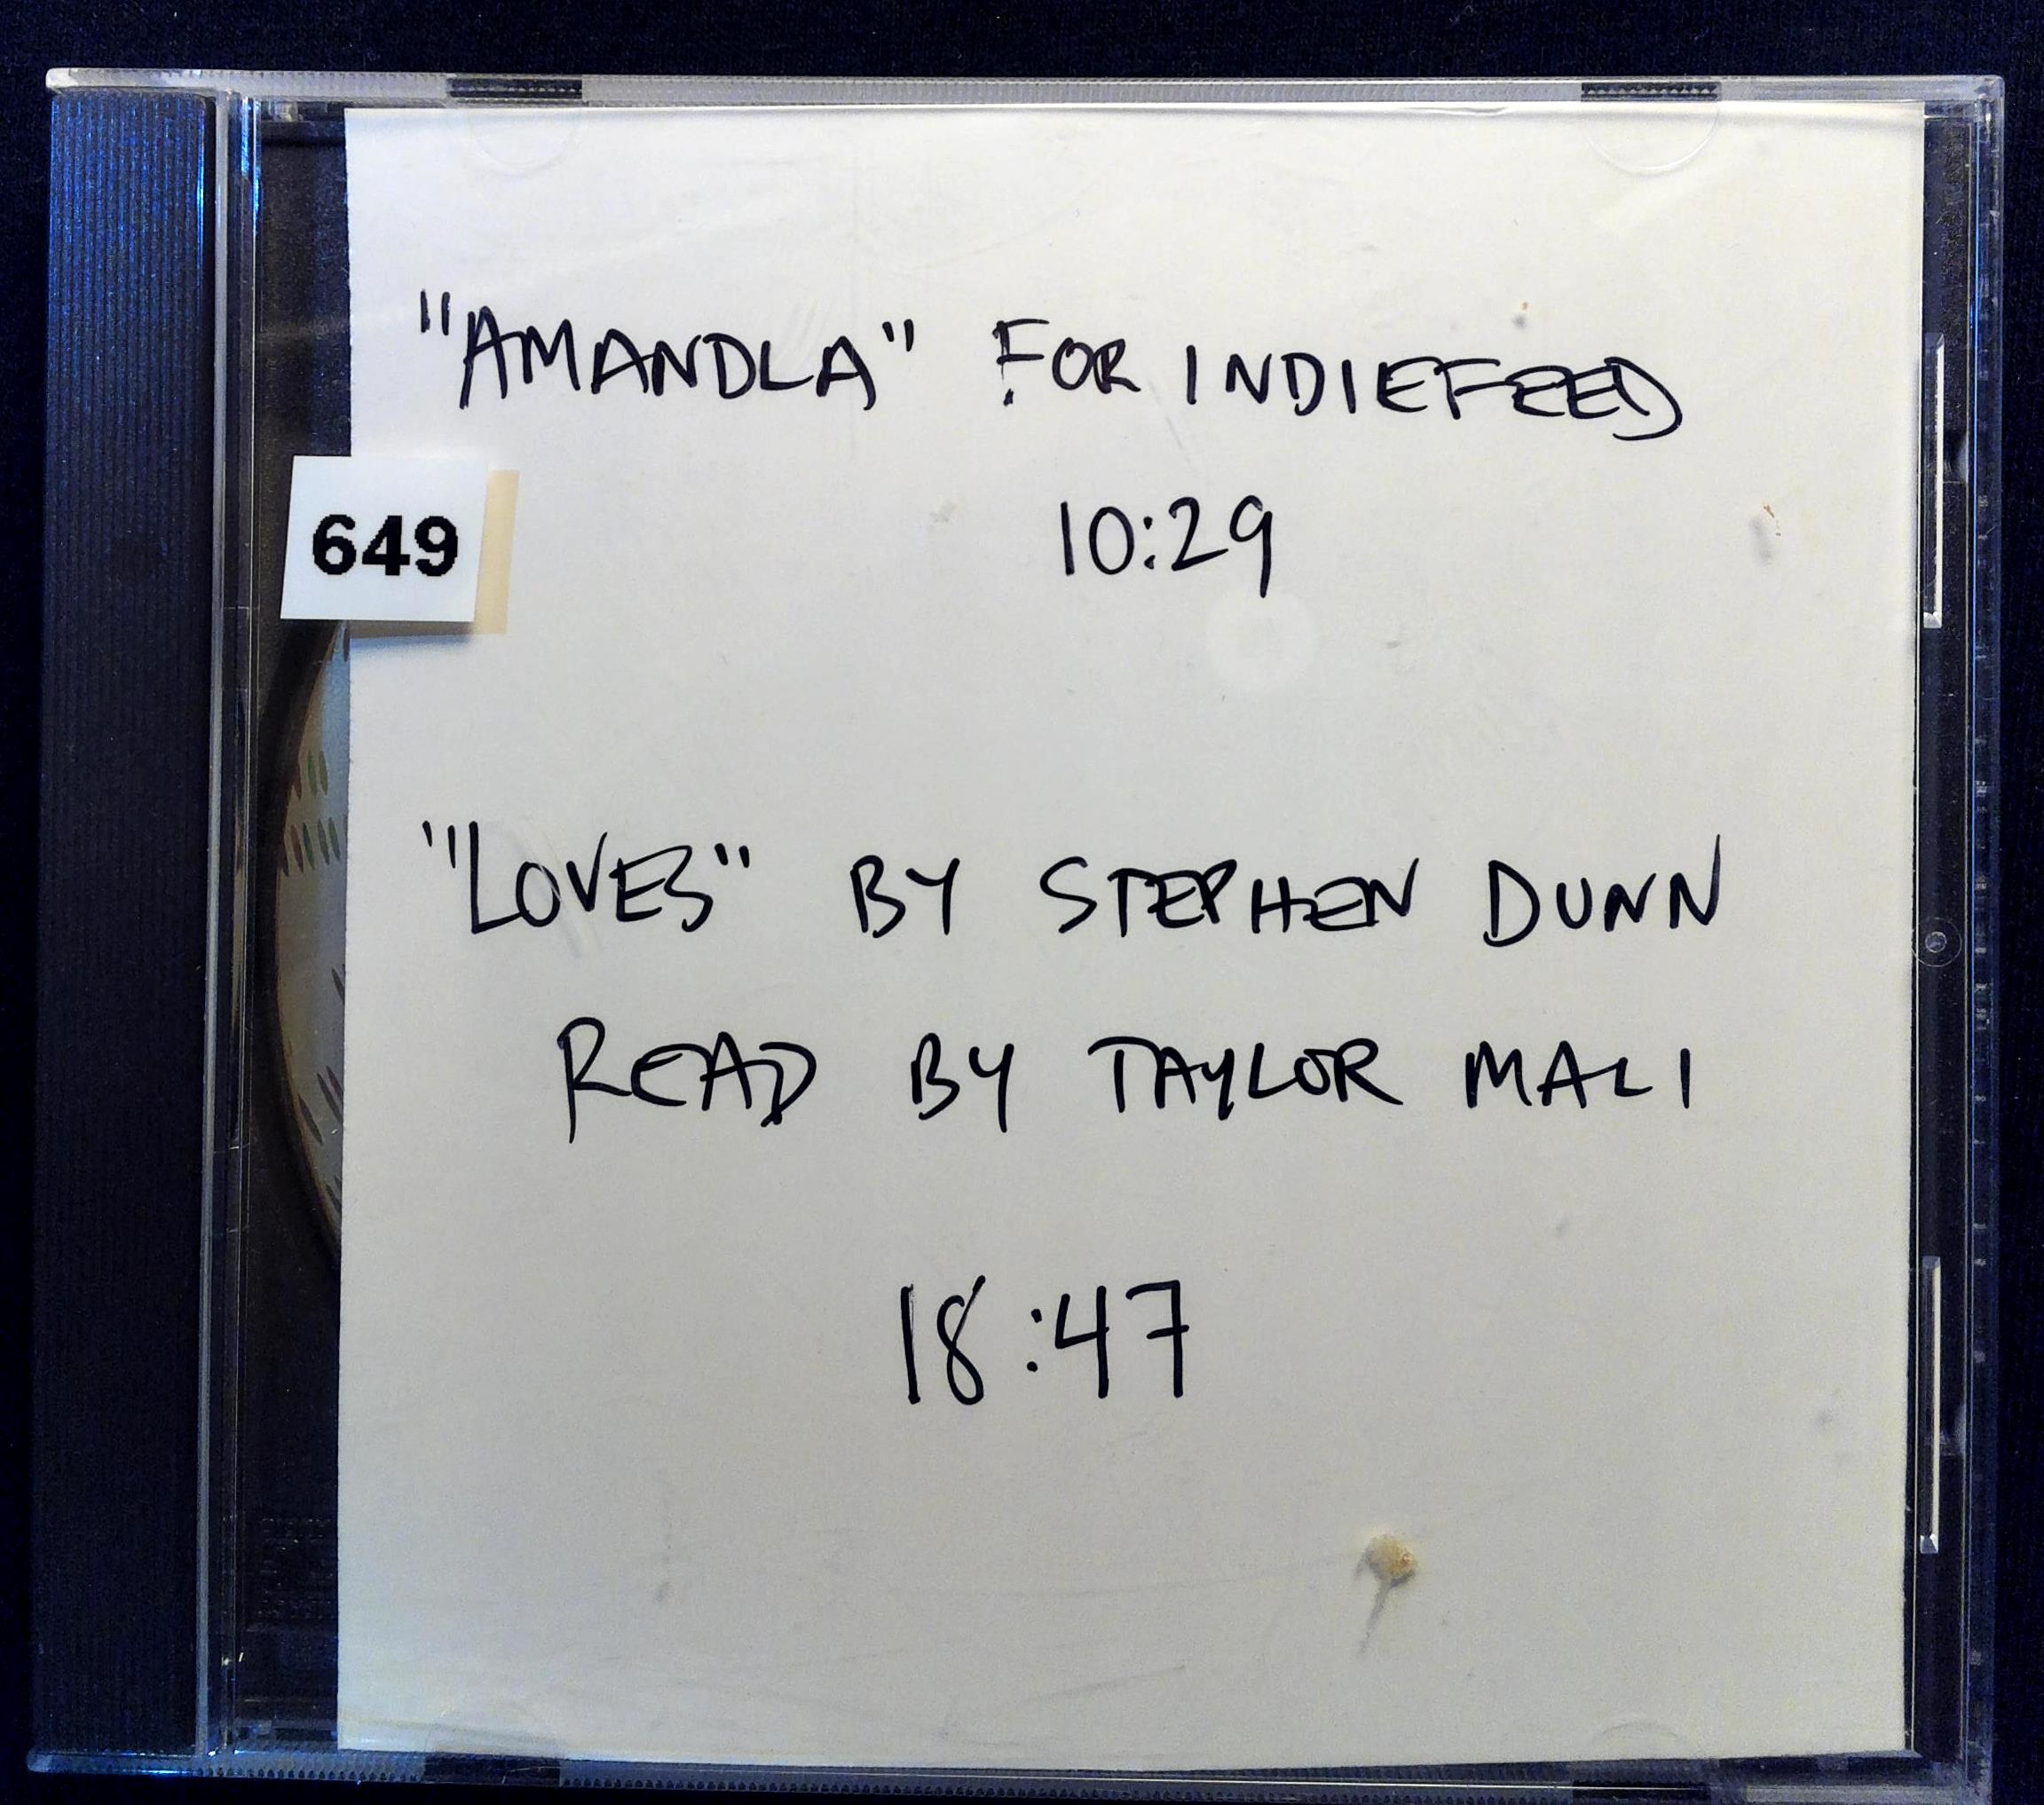 "AMANDLA" FOR INDIEFEED
649
10:29
"LOVES" BY STEPHEN DUNN
READ BY TAYLOR MALI
18:47